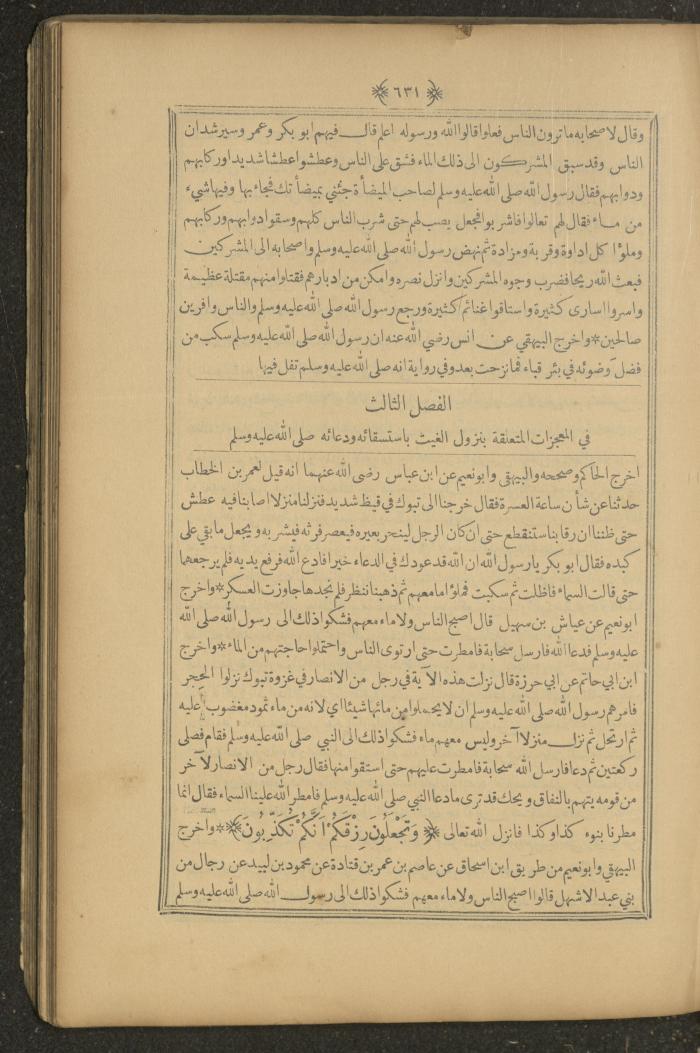 ﴿ ٦٣١ ﴾
وقال لاصحابه ماترون الناس فعلوا قالوا الله ورسوله اعلم قال فيهم ابو بكر وعمر وسيرشدان
الناس وقد سبق المشركون الى ذلك الماء فشق على الناس وعطشوا عطشا شديدا وركابهم
ودوابهم فقال رسول الله صلى الله عليه وسلم لصاحب الميضأة جئني بميضأتك فجاء بها وفيها شيء
من ماء فقال لهم تعالوا فاشربوا فجعل يصب لهم حتى شرب الناس كلهم وسقوا دوابهم وركابهم
وملؤا كل اداوة وقربة ومزادة ثم نهض رسول الله صلى الله عليه وسلم واصحابه الى المشركين
فبعث الله ريحا فضرب وجوه المشركين وانزل نصره وامكن من ادبارهم فقتلوا منهم مقتلة عظيمة
واسروا اسارى كثيرة واستاقوا غنائم كثيرة ورجع رسول الله صلى الله عليه وسلم والناس وافرين
صالحين * واخرج البيهقي عن انس رضي الله عنه ان رسول الله صلى الله عليه وسلم سكب من
فضل وضوئه في بئر قباء فما نزحت بعد وفي رواية انه صلى الله عليه وسلم تفل فيها
الفصل الثالث
في المعجزات المتعلقة بنزول الغيث باستسقائه ودعائه صلى الله عليه وسلم
اخرج الحاكم وصححه والبيهقي وابونعيم عن ابن عباس رضى الله عنهما انه قيل لعمر بن الخطاب
حدثنا عن شأن ساعة العسرة فقال خرجنا الى تبوك في قيظ شديد فنزلنا منزلا اصابنا فيه عطش
حتى ظننا ان رقابنا ستنقطع حتى ان كان الرجل لينحر بعيره فيعصر فرثه فيشربه ويجعل ما بقي على
كبده فقال ابو بكر يارسول الله ان الله قد عودك في الدعاء خيرا فادع الله فرفع يديه فلم يرجعهما
حتى قالت السماء فاظلت ثم سكبت فملؤا ما معهم ثم ذهبنا ننظر فلم نجدها جاوزت العسكر * واخرج
ابونعيم عن عياش بن سهيل قال اصبح الناس ولا ماء معهم فشكوا ذلك الى رسول الله صلى الله
عليه وسلم فدعا الله فارسل سحابة فامطرت حتى ارتوى الناس واحتملوا حاجتهم من الماء * واخرج
ابن ابي حاتم عن ابي حرزة قال نزلت هذه الآية في رجل من الانصار في غزوة تبوك نزلوا الحجر
فامرهم رسول الله صلى الله عليه وسلم ان لا يحملوا من مائها شيئا اي لانه من ماء ثمود مغضوب عليه
ثم ارتحل ثم نزل منزلا آخر وليس معهم ماء فشكوا ذلك الى النبي صلى الله عليه وسلم فقام فصلى
ركعتين ثم دعا فارسل الله سحابة فامطرت عليهم حتى استقوا منها فقال رجل من الانصار لآخر
من قومه يتهم بالنفاق ويحك قد ترى ما دعا النبي صلى الله عليه وسلم فامطر الله علينا السماء فقال انما
مطرنا بنوء كذا وكذا فانزل الله تعالى ﴿ وَتَجْعَلُونَ رِزْقَكُمْ اَنَّكُمْ تُكَذِّبُونَ ﴾ * واخرج
البيهقي وابونعيم من طريق ابن اسحاق عن عاصم بن عمر بن قتادة عن محمود بن لبيد عن رجال من
بني عبد الاشهل قالوا اصبح الناس ولا ماء معهم فشكوا ذلك الى رسول الله صلى الله عليه وسلم